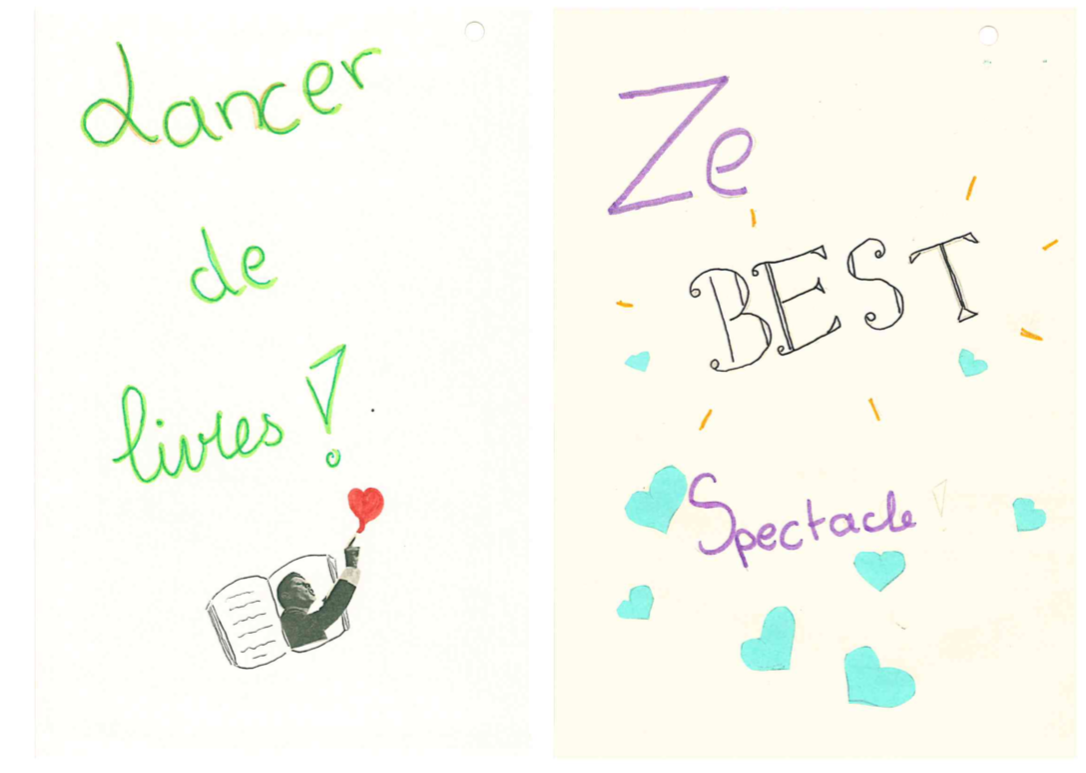 Lancer
de
livres !
Ze
BEST
Spectacle